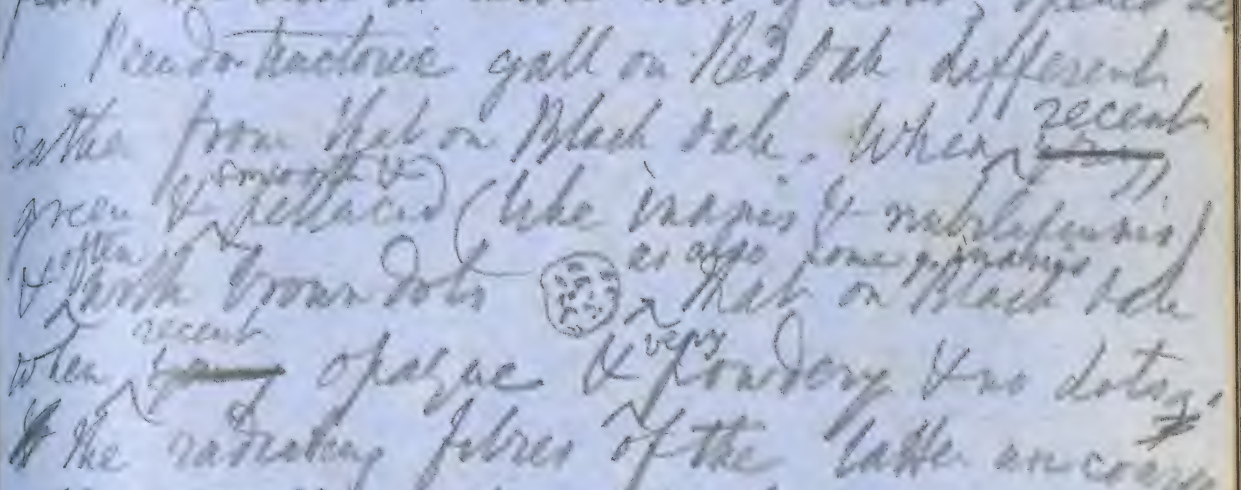 Pseudotinctoriae gall on Red Oak different
rather from that on Black Oak. When recent
green & smooth & pellucid (like inanis & nubilipennis)
& often with brown dots as also some q. inanis That on Black Oak
when recent opaque & very powdery & no dots,
& the radiating fibres of the latter are coarse